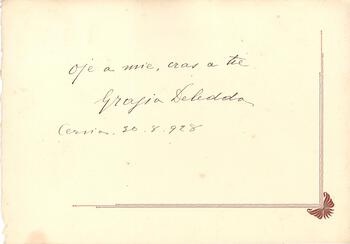 oje a mie, cras a tie
Grazia Deledda
Cervia. 20.8.928